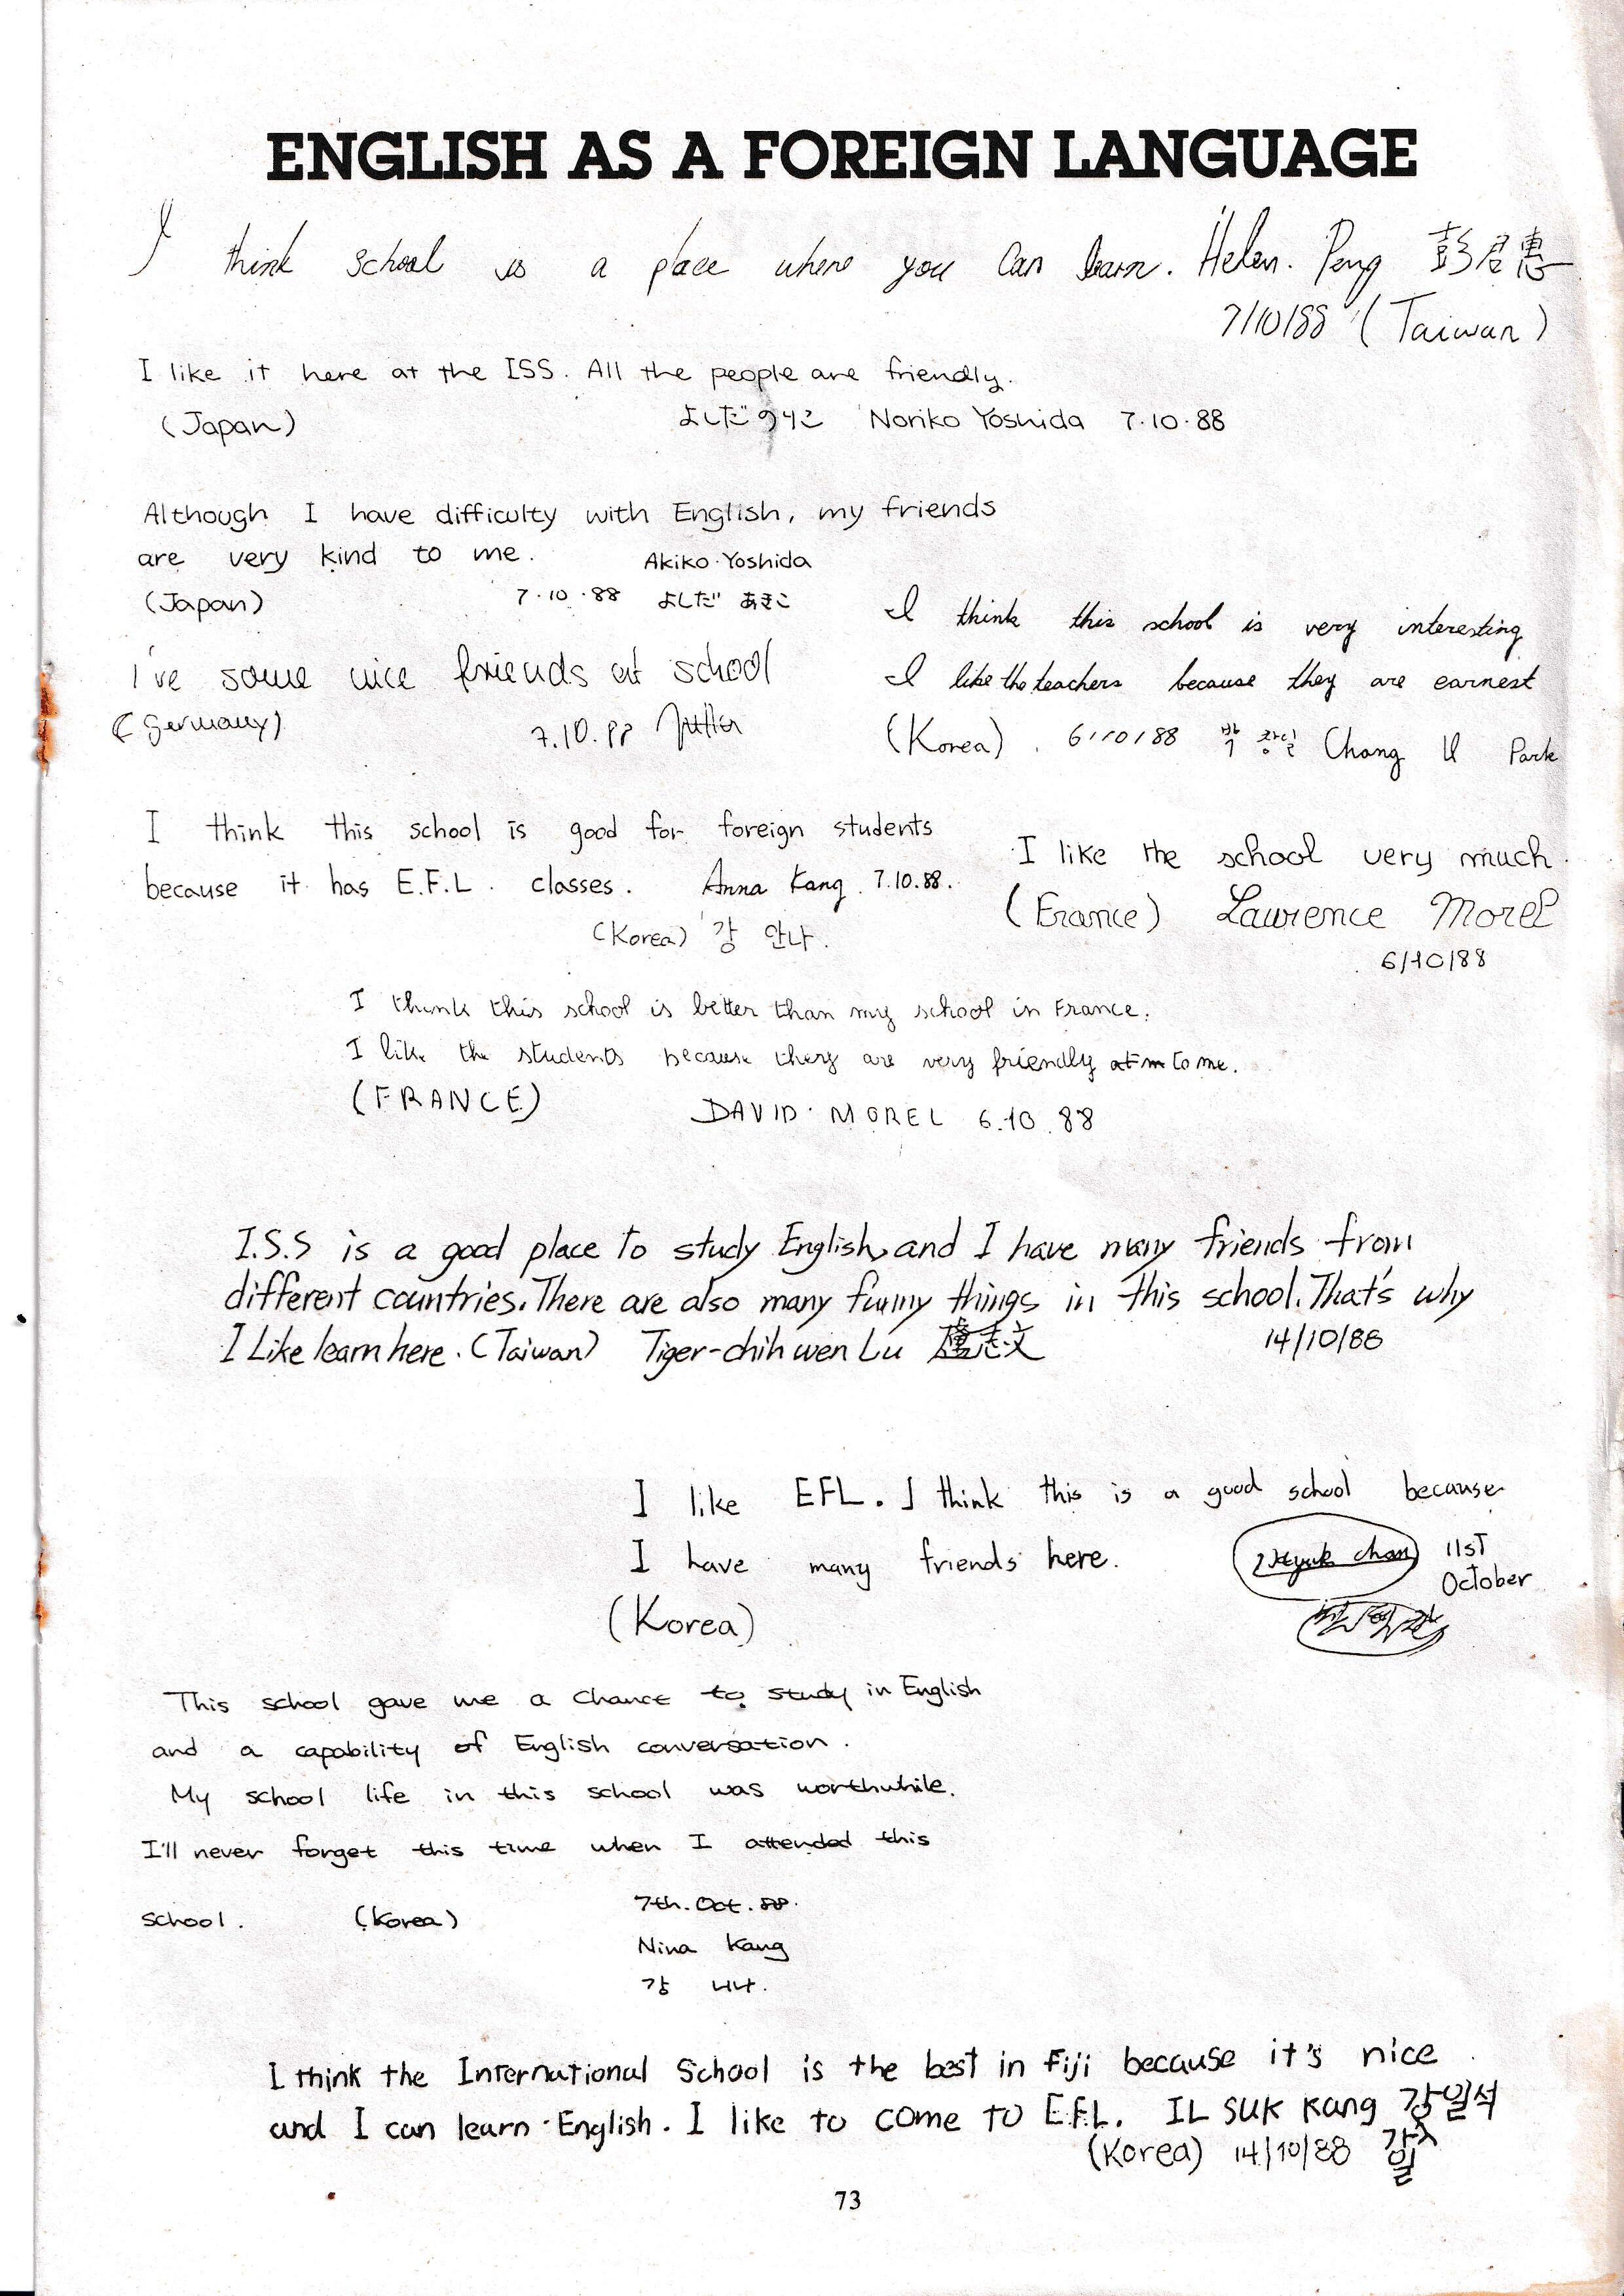 ENGLISH AS A FOREIGN LANGUAGE
I think school is a place where you can learn. Helen. Peng 彭君惠
7/10/88 (Taiwan)
I like it here at the ISS. All the people are friendly.
(Japan) よしだのりこ Noriko Yoshida 7.10.88
Although I have difficulty with English, my friends
are very kind to me. Akiko Yoshida
(Japan) 7.10.88 よしだ あきこ
I've some nice friends at school
(Germany) 7.10.88
I think this school is very interesting
I like the teachers because they are earnest
(Korea). 6/10/88 박 창일 Chang Il Park
I think this school is good for foreign students
because it has E.F.L. classes. Anna Kang. 7.10.88.
(Korea) 강 안나.
I like the school very much.
(France) Laurence Morel
6/10/88
I think this school is better than my school in France.
I like the students because they are very friendly at m to me.
(FRANCE) DAVID MOREL 6.10.88
I.S.S is a good place to study English, and I have many friends from
different countries. There are also many funny things in this school. That's why
I Like learn here. (Taiwan) Tiger-chih wen Lu 盧志文 14/10/88
I like EFL. I think this is a good school because
I have many friends here. Hyuk chan 11ST
October
(Korea)
This school gave me a chance to study in English
and a capability of English conversation.
My school life in this school was worthwhile.
I'll never forget this time when I attended this
school. (Korea) 7th. Oct. 88.
Nina Kang
강 니나.
I think the International School is the best in Fiji because it's nice
and I can learn English. I like to come to E.F.L. IL SUK Kang 강일석
(Korea) 14/10/88
73